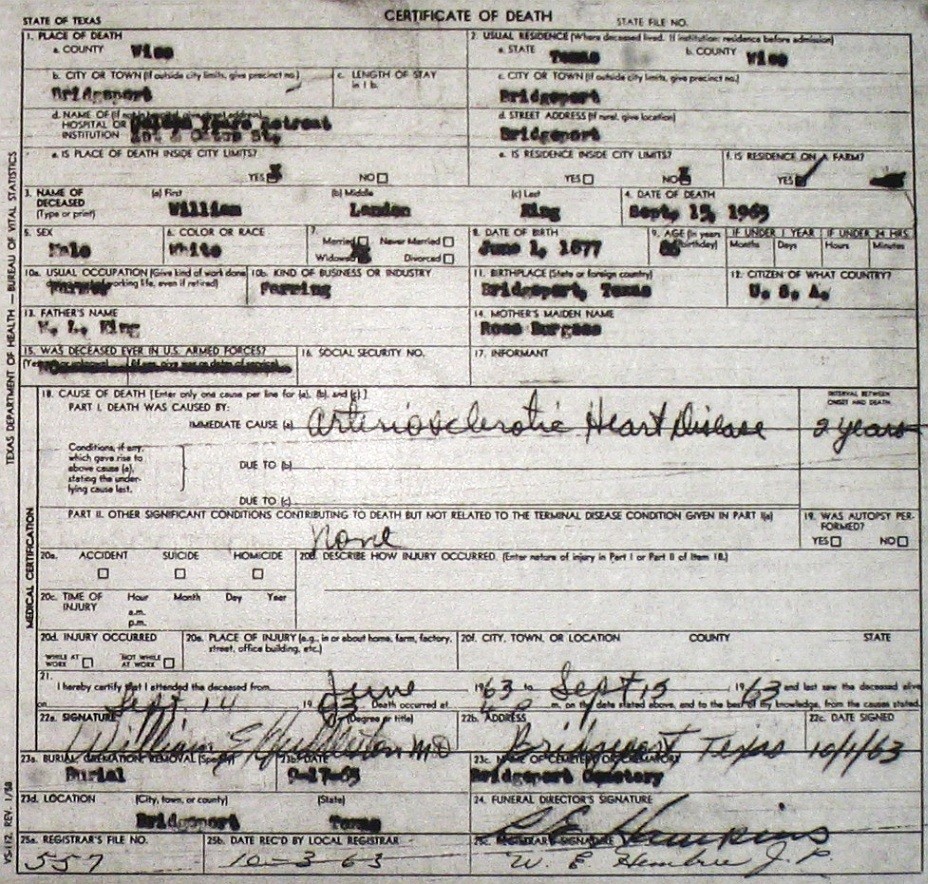 CERTIFICATE OF DEATH
STATE OF TEXAS
STATE FILE NO.
TEXAS DEPARTMENT OF HEALTH — BUREAU OF VITAL STATISTICS
1. PLACE OF DEATH
a. COUNTY Wise
2. USUAL RESIDENCE (Where deceased lived. If institution: residence before admission)
a. STATE Texas b. COUNTY Wise
b. CITY OR TOWN (If outside city limits, give precinct no.)
Bridgeport
c. LENGTH OF STAY in 1 b.
c. CITY OR TOWN (If outside city limits, give precinct no.)
Bridgeport
d. NAME OF (If not in hospital, give street address)
HOSPITAL OR INSTITUTION Golden Years Retreat
d. STREET ADDRESS (If rural, give location)
Bridgeport
e. IS PLACE OF DEATH INSIDE CITY LIMITS?
YES NO
e. IS RESIDENCE INSIDE CITY LIMITS?
YES NO
f. IS RESIDENCE ON A FARM?
YES
3. NAME OF DECEASED (Type or print)
(a) First (b) Middle (c) Last
William Landon King
4. DATE OF DEATH
Sept. 15, 1963
5. SEX
Male
6. COLOR OR RACE
White
7.
Married Never Married
Widowed Divorced
8. DATE OF BIRTH
June 1, 1877
9. AGE (In years birthday)
86
IF UNDER 1 YEAR
Months Days
IF UNDER 24 HRS.
Hours Minutes
10a. USUAL OCCUPATION (Give kind of work done working life, even if retired)
Farmer
10b. KIND OF BUSINESS OR INDUSTRY
Farming
11. BIRTHPLACE (State or foreign country)
Bridgeport, Texas
12. CITIZEN OF WHAT COUNTRY?
U. S. A.
13. FATHER'S NAME
King
14. MOTHER'S MAIDEN NAME
Rose Burgess
15. WAS DECEASED EVER IN U.S. ARMED FORCES?
16. SOCIAL SECURITY NO.
17. INFORMANT
MEDICAL CERTIFICATION
18. CAUSE OF DEATH [Enter only one cause per line for (a), (b), and (c).]
INTERVAL BETWEEN ONSET AND DEATH
PART I. DEATH WAS CAUSED BY:
IMMEDIATE CAUSE (a) Arteriosclerotic Heart Disease 2 years
Conditions, if any, which gave rise to above cause (a), stating the underlying cause last.
DUE TO (b)
DUE TO (c)
PART II. OTHER SIGNIFICANT CONDITIONS CONTRIBUTING TO DEATH BUT NOT RELATED TO THE TERMINAL DISEASE CONDITION GIVEN IN PART I(a)
none
19. WAS AUTOPSY PERFORMED?
YES NO
20a. ACCIDENT SUICIDE HOMICIDE
20b. DESCRIBE HOW INJURY OCCURRED. (Enter nature of injury in Part I or Part II of Item 18.)
20c. TIME OF INJURY
Hour Month Day Year
a.m.
p.m.
20d. INJURY OCCURRED
WHILE AT WORK NOT WHILE AT WORK
20e. PLACE OF INJURY (e.g., in or about home, farm, factory, street, office building, etc.)
20f. CITY, TOWN, OR LOCATION COUNTY STATE
21.
I hereby certify that I attended the deceased from June 1963 to Sept 15 1963 and last saw the deceased alive
on Sept 14 1963 Death occurred at m. on the date stated above, and to the best of my knowledge, from the causes stated.
22a. SIGNATURE (Degree or title)
William MD
22b. ADDRESS
Bridgeport Texas
22c. DATE SIGNED
10/1/63
23a. BURIAL, CREMATION, REMOVAL (Specify)
Burial
23b. DATE
9-17-63
23c. NAME OF CEMETERY OR CREMATORY
Bridgeport Cemetery
23d. LOCATION (City, town, or county) (State)
Bridgeport Texas
24. FUNERAL DIRECTOR'S SIGNATURE
Hawkins
25a. REGISTRAR'S FILE NO.
557
25b. DATE REC'D BY LOCAL REGISTRAR
10-3-63
25c. REGISTRAR'S SIGNATURE
W. E. Hembree J.P.
VS-112, REV. 1/58